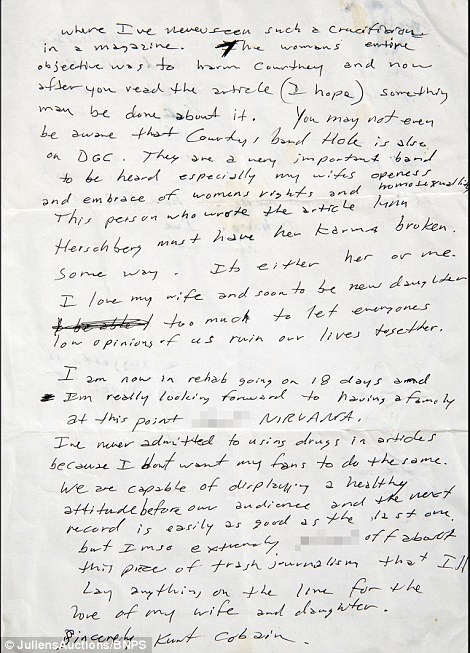 where I've never seen such a crucifixion
in a magazine. The womans entire
objective was to harm Courtney and now
after you read the article (I hope) something
may be done about it. You may not even
be aware that Courtys band Hole is also
on DGC. They are a very important band
to be heard especially my wifes openess
and embrace of womens rights and homosexuality
This person who wrote the article lynn
Herschberg must have her Karma broken.
Some way. Its either her or me.
I love my wife and soon to be new daughter
too much to let everyones
low opinions of us ruin our lives together.
I am now in rehab going on 18 days and
Im really looking forward to having a family
at this point NIRVANA.
Ive never admitted to using drugs in articles
because I dont want my fans to do the same.
We are capable of displaying a healthy
attitude before our audience and the next
record is easily as good as the last one.
but I'm so extremely off about
this piece of trash journalism that I'll
Lay anything on the line for the
love of my wife and daughter.
Sincerely Kurt Cobain.
© JuliensAuctions/BNPS